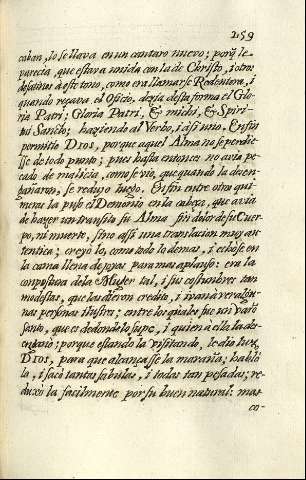 259
caban, lo sellava en un cantaro nuevo; porq̃ le
parecia, que estava unida con la de Christo, i otros
desatinos à este tono, como era llamarse Redentora, i
quando reçava el Oficio, dezia desta forma el Glo-
ria Patri; Gloria Patri, & michi, & Spiri-
tui Sancto; haziendo al Verbo, i à si uno. Enfin
permitio DIOS, porque aquel Alma no se perdie-
sse de todo punto; pues hasta entonces no avia pe-
cado de malicia, como se viò, que quando la desen-
gañaron, se reduxo luego. Enfin entre otras qui-
meras la puso el Demonio en la cabeça, que avia
de hazer un transito su Alma sin dolor de su Cuer-
po, ni muerte, sino assi una translacion muy au-
tentica; creyò lo, como todo lo demas, i echòse en
la cama llena de joyas para mas aplauso: era la
compostura de la Muger tal, i sus costumbres tan
modestas, que las dieron credito, i ivan à ver algu-
nas personas ilustres; entre los quales fue un varõ
Santo, que es de donde lo supe, i quien à ella la des-
engañò: porque estando la visitando, le diò luz
DIOS, para que alcançasse la maraña; hablò
la, i sacò tantas fabulas, i todas tan pesadas; re-
duxola facilmente por su buen natural: mas
co-